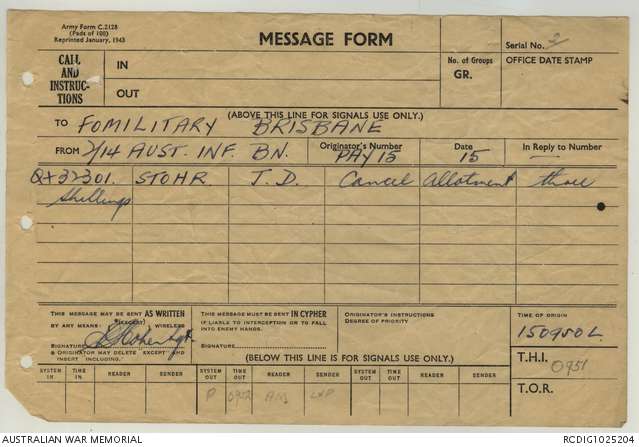 Army Form C.2128
(Pads of 100)
Reprinted January, 1943
MESSAGE FORM
Serial No. 2
CALL
AND
INSTRUC-
TIONS
IN
OUT
No. of Groups
GR.
OFFICE DATE STAMP
(ABOVE THIS LINE FOR SIGNALS USE ONLY.)
TO FOMILITARY BRISBANE
FROM 2/14 AUST. INF. BN.
Originator's Number
PAY 15
Date
15
In Reply to Number
—
QX32301. STOHR. J.D. Cancel Allotment three
shillings
THIS MESSAGE MAY BE SENT AS WRITTEN
BY ANY MEANS. (EXCEPT) WIRELESS
SIGNATURE
ORIGINATOR MAY DELETE EXCEPT AND
INSERT INCLUDING.
THIS MESSAGE MUST BE SENT IN CYPHER
IF LIABLE TO INTERCEPTION OR TO FALL
INTO ENEMY HANDS.
SIGNATURE
ORIGINATOR'S INSTRUCTIONS
DEGREE OF PRIORITY
TIME OF ORIGIN
150950L
(BELOW THIS LINE IS FOR SIGNALS USE ONLY.)
T.H.I. 0951
T.O.R.
SYSTEM IN TIME IN READER SENDER SYSTEM OUT TIME OUT READER SENDER SYSTEM OUT TIME OUT READER SENDER
P
AUSTRALIAN WAR MEMORIAL
RCDIG1025204